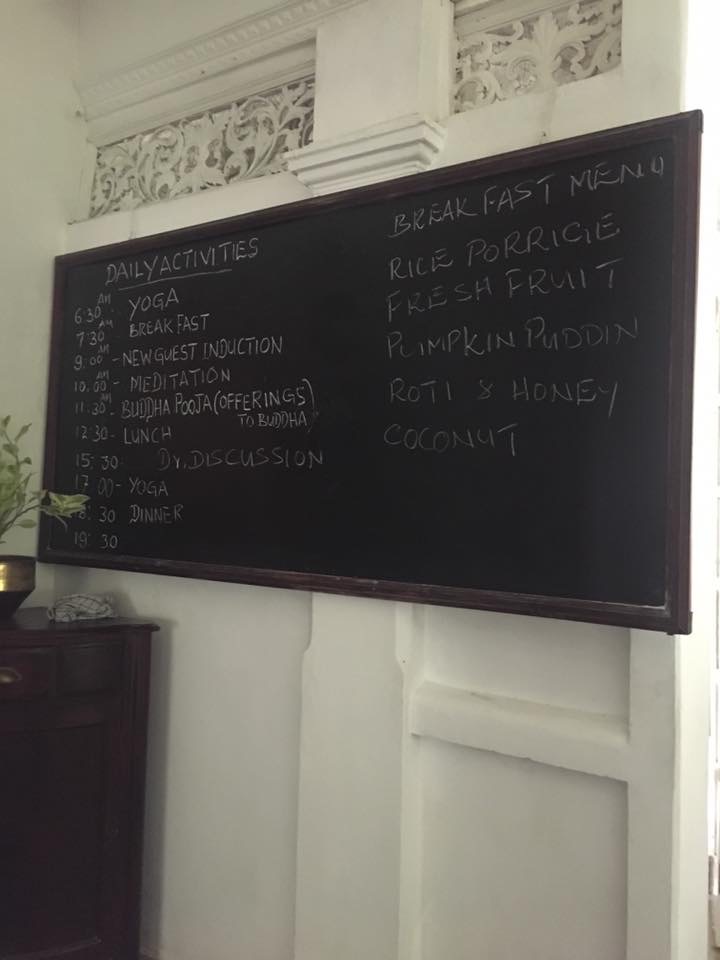 DAILY ACTIVITIES
6:30 AM YOGA
7:30 AM BREAKFAST
9:00 AM - NEW GUEST INDUCTION
10.00 AM - MEDITATION
11.30 AM BUDDHA POOJA (OFFERINGS
TO BUDDHA)
12:30 - LUNCH
15:30 Dr. DISCUSSION
17 00 - YOGA
18:30 DINNER
19:30
BREAKFAST MENU
RICE PORRIGE
FRESH FRUIT
PUMPKIN PUDDIN
ROTI & HONEY
COCONUT